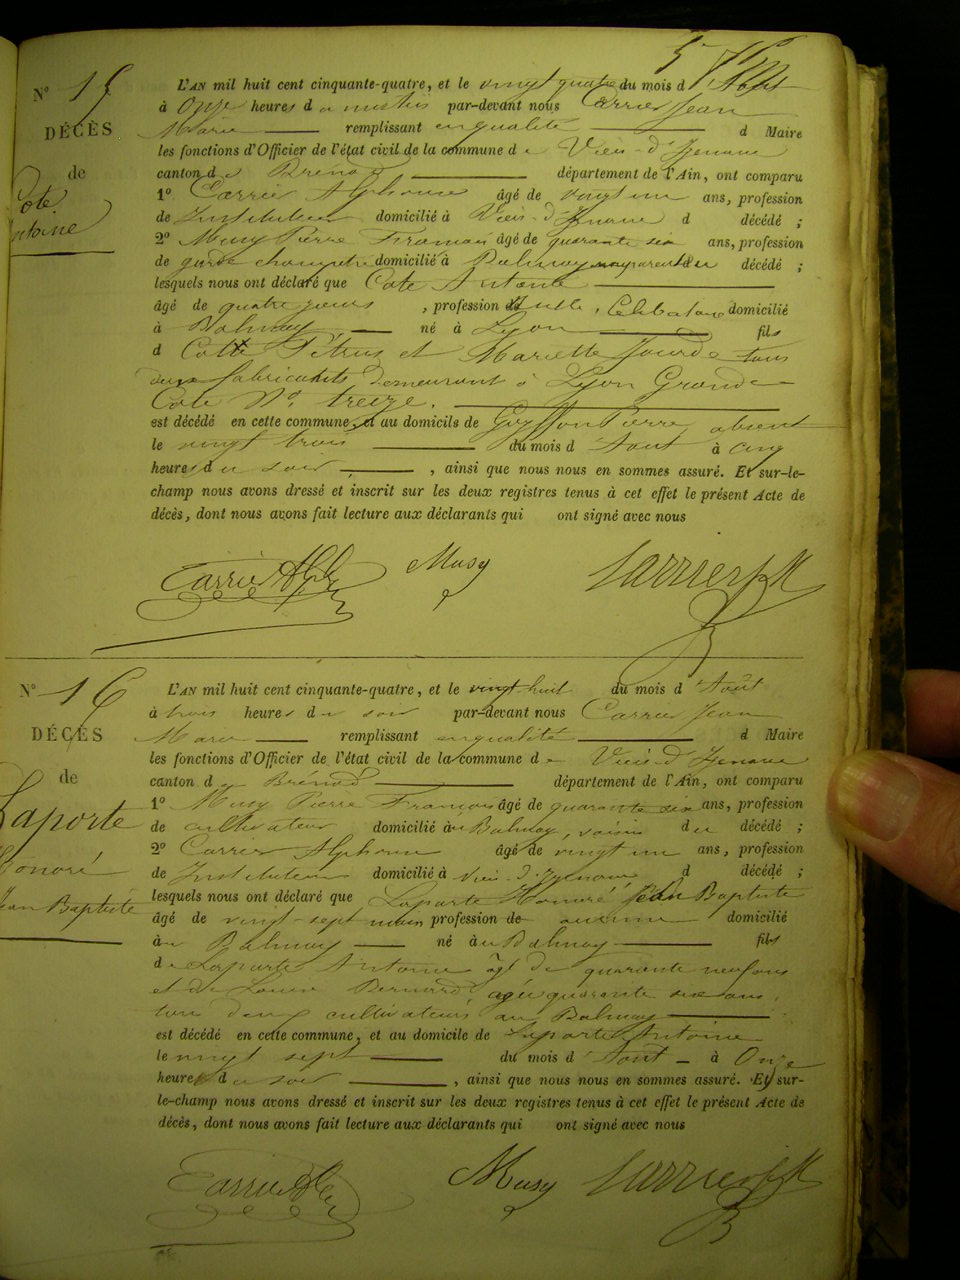 N° 15
DÉCÈS
de
Cote
Antoine
L'AN mil huit cent cinquante-quatre, et le vingt quatre du mois d Août
à Onze heures du matin par-devant nous Carrier Jean
Marie remplissant en qualité d Maire
les fonctions d'Officier de l'état civil de la commune de Vieu-d'Izenave
canton de Brénod département de l'Ain, ont comparu
1° Carrier Alphonse âgé de vingt un ans, profession
de Instituteur domicilié à Vieu-d'Izenave d décédé ;
2° Musy Pierre François âgé de quarante six ans, profession
de garde champetre domicilié à Balmay non parent du décédé ;
lesquels nous ont déclaré que Cote Antoine
âgé de quatre jours , profession nulle, Célibataire domicilié
à Balmay né à Lyon fils
d Cotte Pétrus et Mariette Jourde tous
deux fabricants demeurant à Lyon Grande
Cote N° treize.
est décédé en cette commune, et au domicile de Guyffon Pierre absent
le vingt trois du mois d Août à cinq
heures du soir , ainsi que nous nous en sommes assuré. Et sur-le-
champ nous avons dressé et inscrit sur les deux registres tenus à cet effet le présent Acte de
décès, dont nous avons fait lecture aux déclarants qui ont signé avec nous
Carrier Alph Musy Carrier JM
N° 16
DÉCÈS
de
Laporte
honoré
Jean Baptiste
L'AN mil huit cent cinquante-quatre, et le vingt huit du mois d Août
à trois heures du soir par-devant nous Carrier Jean
Marie remplissant en qualité d Maire
les fonctions d'Officier de l'état civil de la commune de Vieu-d'Izenave
canton d Brénod département de l'Ain, ont comparu
1° Musy Pierre François âgé de quarante six ans, profession
de cultivateur domicilié au Balmay, voisin du décédé ;
2° Carrier Alphonse âgé de vingt un ans, profession
de Instituteur domicilié à Vieu-d'Izenave d décédé ;
lesquels nous ont déclaré que Laporte Honoré Jean Baptiste
âgé de vingt-sept mois profession de aucune domicilié
au Balmay né au Balmay fils
de Laporte Antoine âgé de quarante neuf ans
et de Louise Bernard agée quarante six ans,
tous deux cultivateurs au Balmay
est décédé en cette commune, et au domicile de Laporte Antoine
le vingt sept du mois d Août à Onze
heures du soir , ainsi que nous nous en sommes assuré. Et sur-
le-champ nous avons dressé et inscrit sur les deux registres tenus à cet effet le présent Acte de
décès, dont nous avons fait lecture aux déclarants qui ont signé avec nous
Carrier Alph Musy Carrier JM